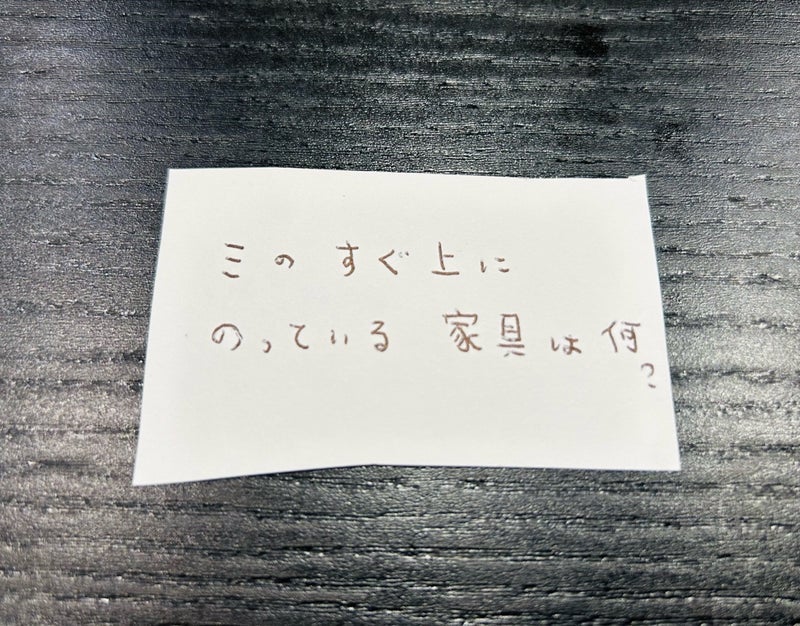 ミの すぐ上に
のっている 家具は何
?